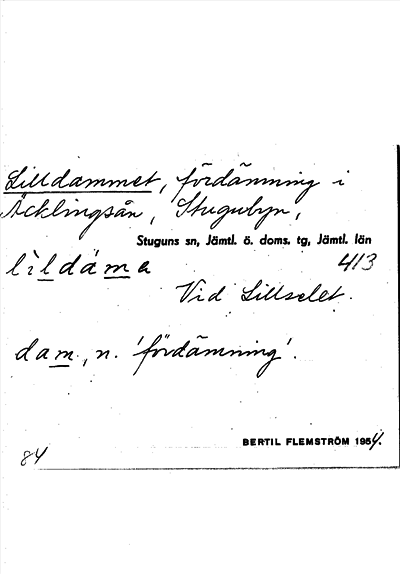 Lilldammet, fördämning i
Äcklingsån, Stugubyn,
Stuguns sn, Jämtl. ö. doms. tg, Jämtl. län
lìldáma 413
Vid Lillselet.
dam, n. 'fördämning'.
BERTIL FLEMSTRÖM 1954.
84